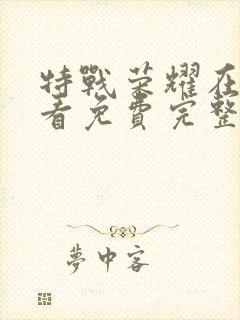 特戰榮耀在
看免費完整
夢中客